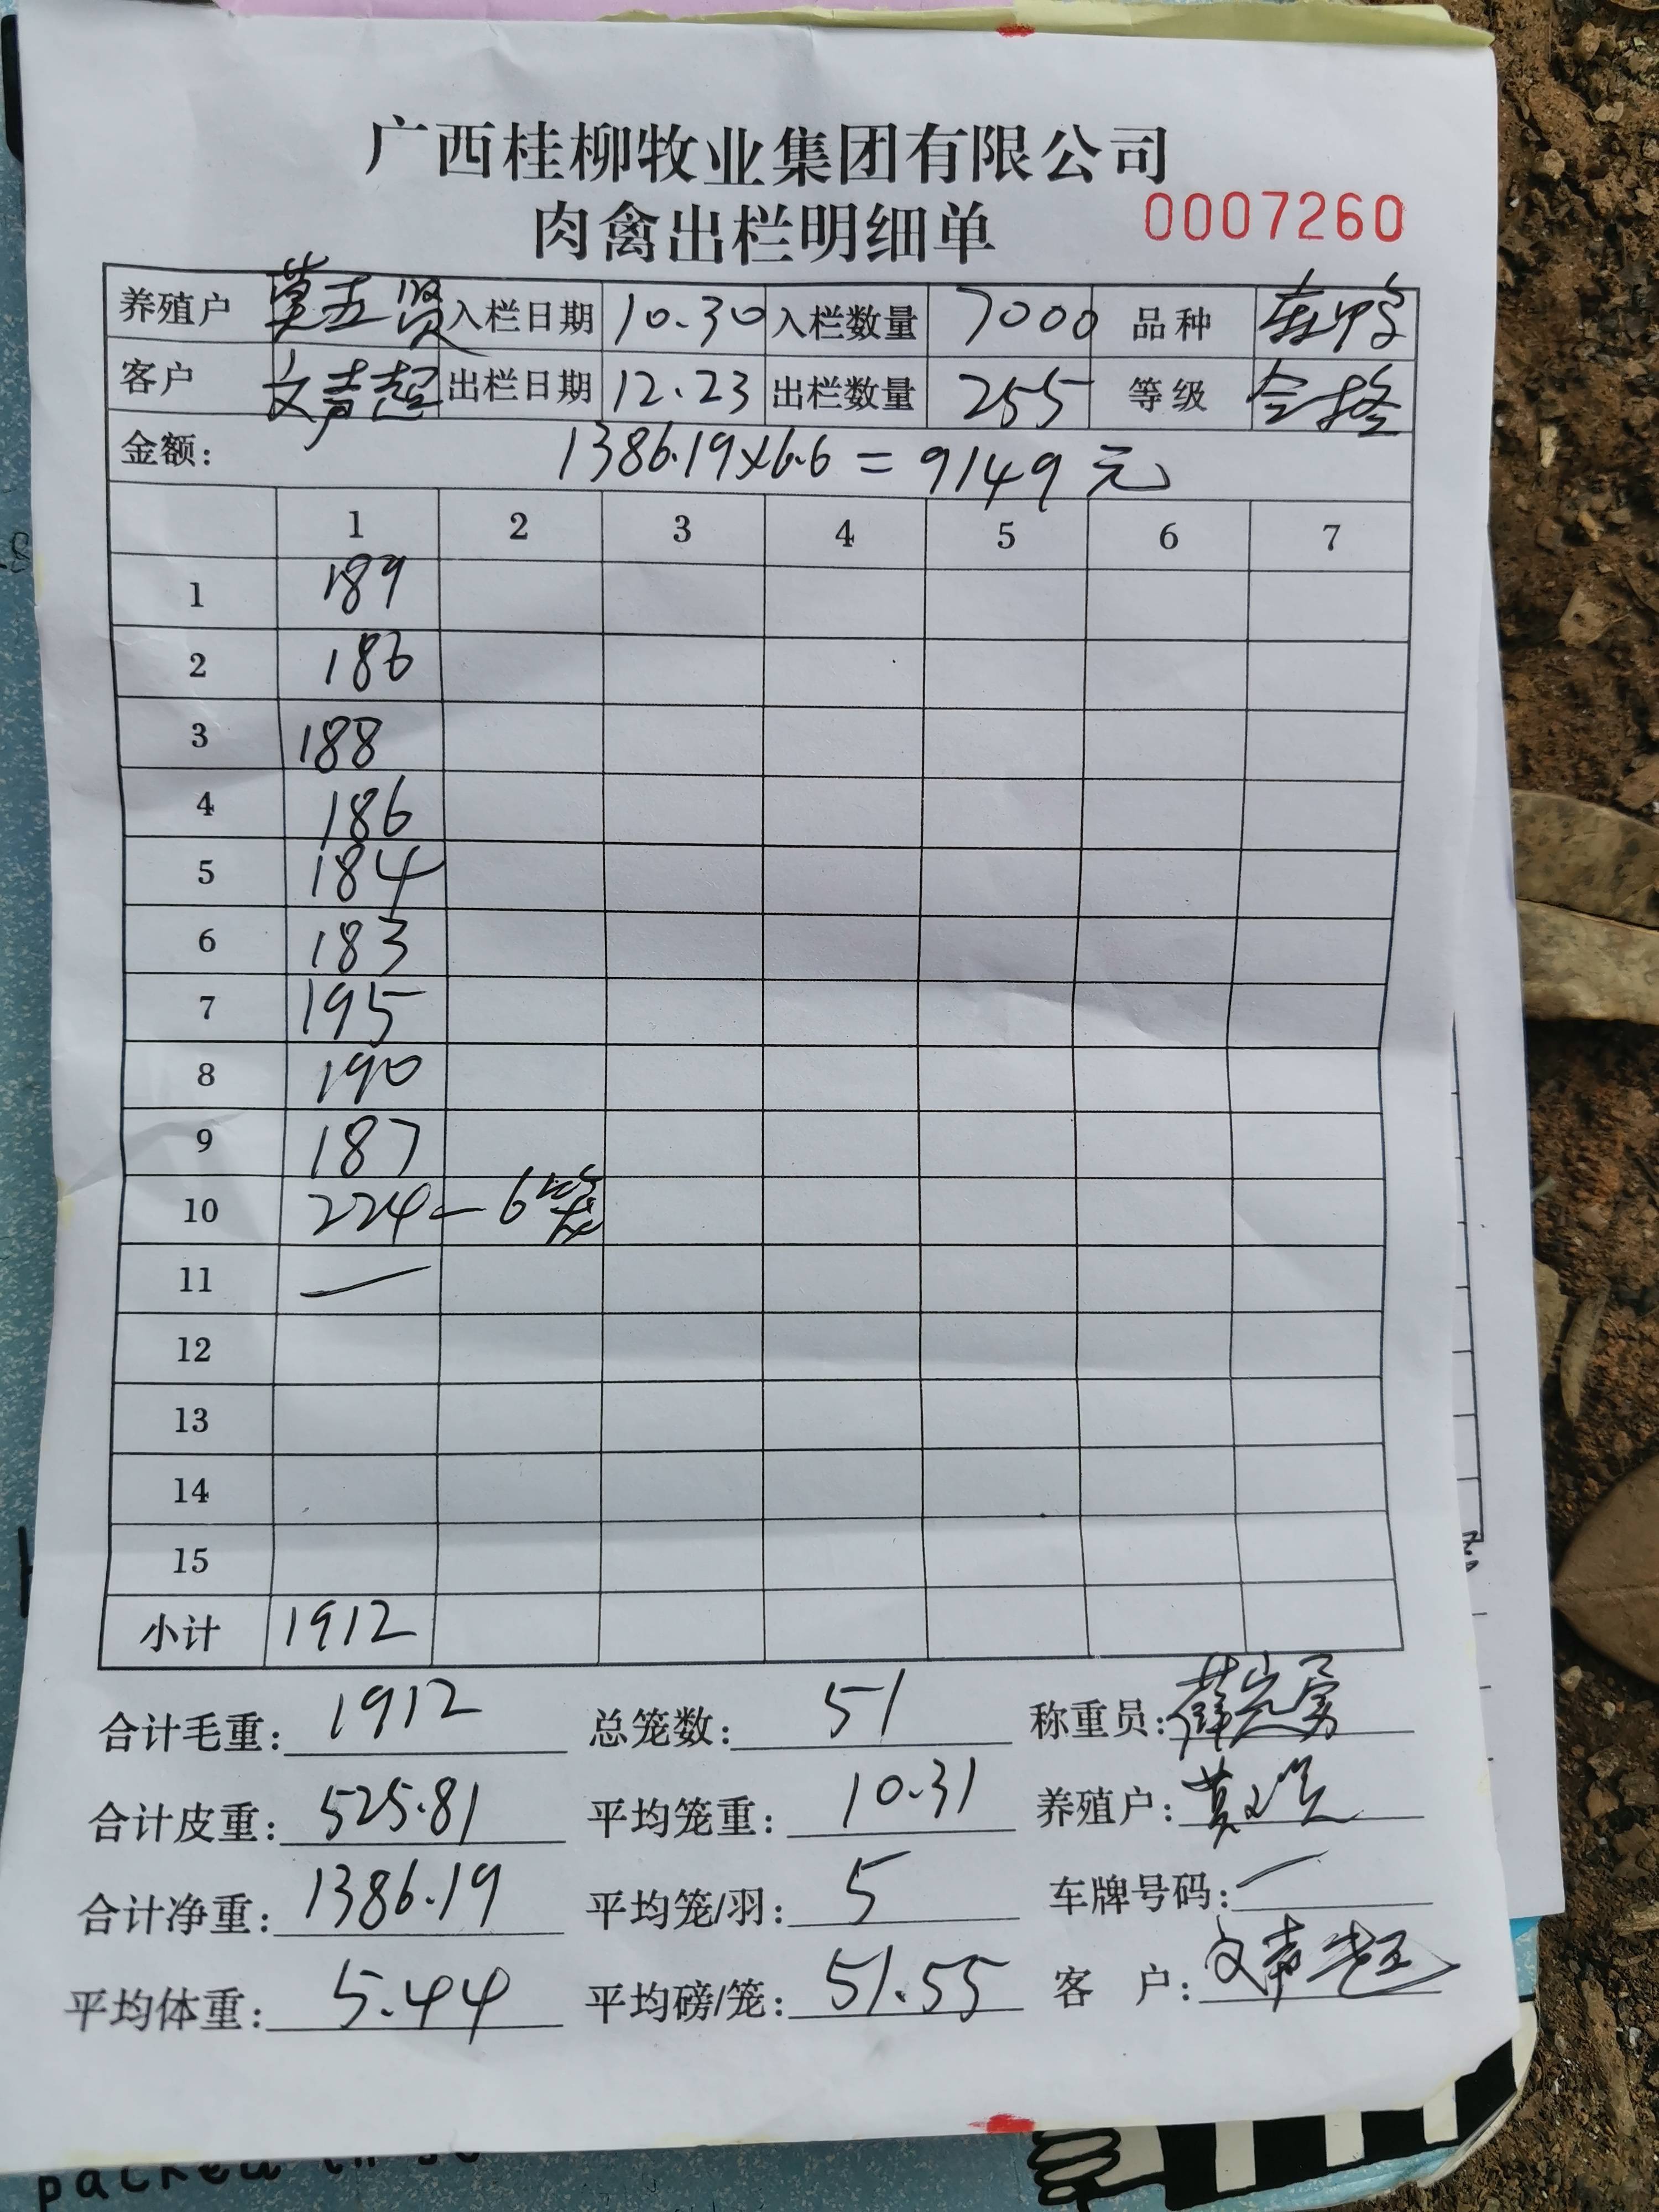 广西桂柳牧业集团有限公司
肉禽出栏明细单 0007260
养殖户 莫五贤 入栏日期 10.30 入栏数量 7000 品种
客户 文声超 出栏日期 12.23 出栏数量 255 等级 合格
金额: 1386.19×6.6=9149元
1 2 3 4 5 6 7
1 189
2 186
3 188
4 186
5 184
6 183
7 195
8 190
9 187
10 224-6笼
11 —
12
13
14
15
小计 1912
合计毛重: 1912 总笼数: 51 称重员:
合计皮重: 525.81 平均笼重: 10.31 养殖户:
合计净重: 1386.19 平均笼/羽: 5 车牌号码: —
平均体重: 5.44 平均磅/笼: 51.55 客 户: 文声超
packed in